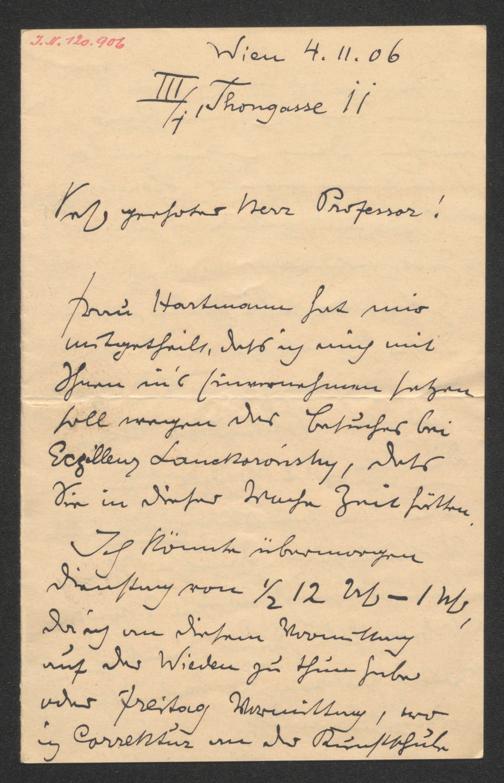 I.N. 120.906
Wien 4.11.06
III/1, Thongasse 11
Sehr geehrter Herr Professor!
Frau Hartmann hat mir
mitgetheilt, daß ich mich mit
Ihnen in's Einvernehmen setzen
soll wegen des Besuches bei
Excellenz Lanckoroński, daß
Sie in dieser Woche Zeit hätten.
Ich könnte übermorgen
Dienstag von ½ 12 Uhr – 1 Uhr,
da ich an diesem Vormittag
auf der Wieden zu thun habe
oder Freitag Vormittag, wo
ich Correktur an der Kunstschule